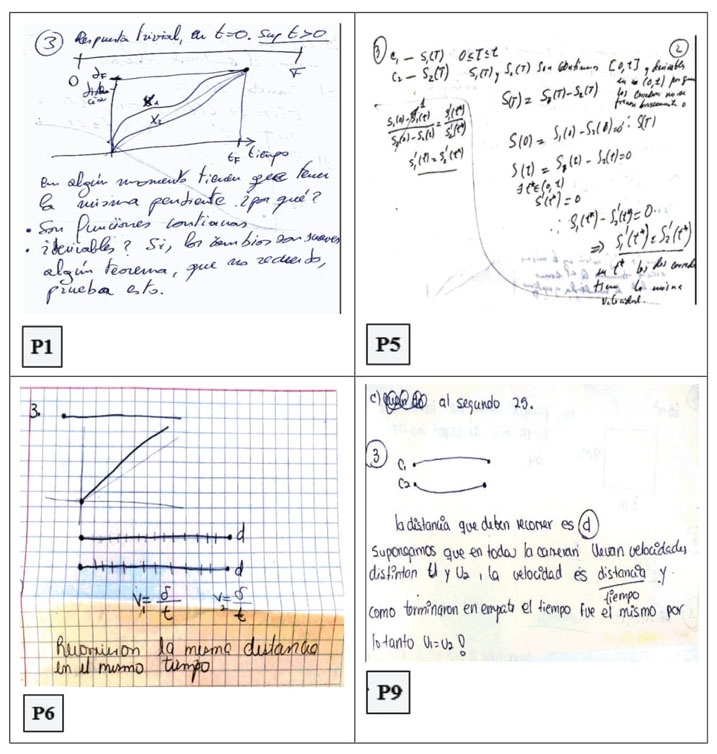 ③ Respuesta trivial, en t=0. Sup t>0
0
F
d_F
distancia
X₂
t_F tiempo
En algún momento tienen que tener
la misma pendiente. ¿por qué?
• Son funciones continuas
• ¿derivables? Si, los cambios son suaves
algún teorema, que no recuerdo,
prueba esto.
P1
②
C₁ – S₁(T) 0≤T≤t
C₂ – S₂(T) S₁(T) y S₂(T) son continuas [0,t] y derivables
en (0,t)
S'₁(t*) = S'₂(t*)
S(t) = S₁(t) - S₂(t) = 0
∃ t* ∈ (0,t)
S'(t*) = 0
∴ S'₁(t*) - S'₂(t*) = 0
⇒ S'₁(t*) = S'₂(t*)
en t* los dos
tienen la misma
velocidad.
P5
3.
d
d
V₁ = δ/t V₂ = δ/t
Recorrieron la misma distancia
en el mismo tiempo
P6
c) al segundo 25.
③
C₁
C₂
la distancia que deben recorrer es d
Supongamos que en toda la carrera llevan velocidades
distintas U y U₂, la velocidad es distancia/tiempo y
como terminaron en empate el tiempo fue el mismo por
lo tanto U₁=U₂
P9